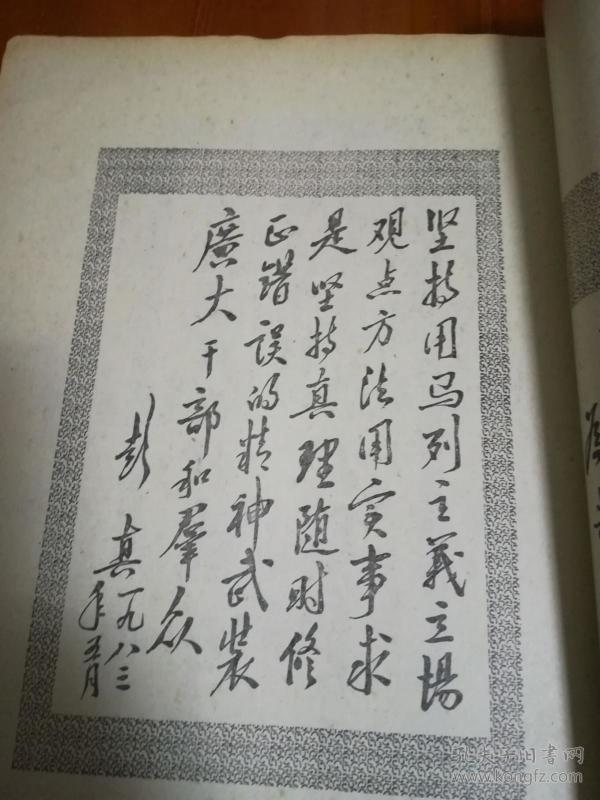 坚持用马列主义立場
观点方法用实事求
是坚持真理随时修
正錯误的精神武裝
廣大干部和羣众
彭真一九八三
年五月
孔夫子旧書网
www.kongfz.com